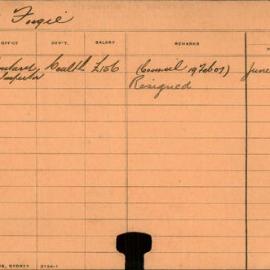 Fogie
OFFICE DEP'T. SALARY REMARKS
Inspector Health £156 (Council 19 Feb 07) June
Resigned
SYDNEY